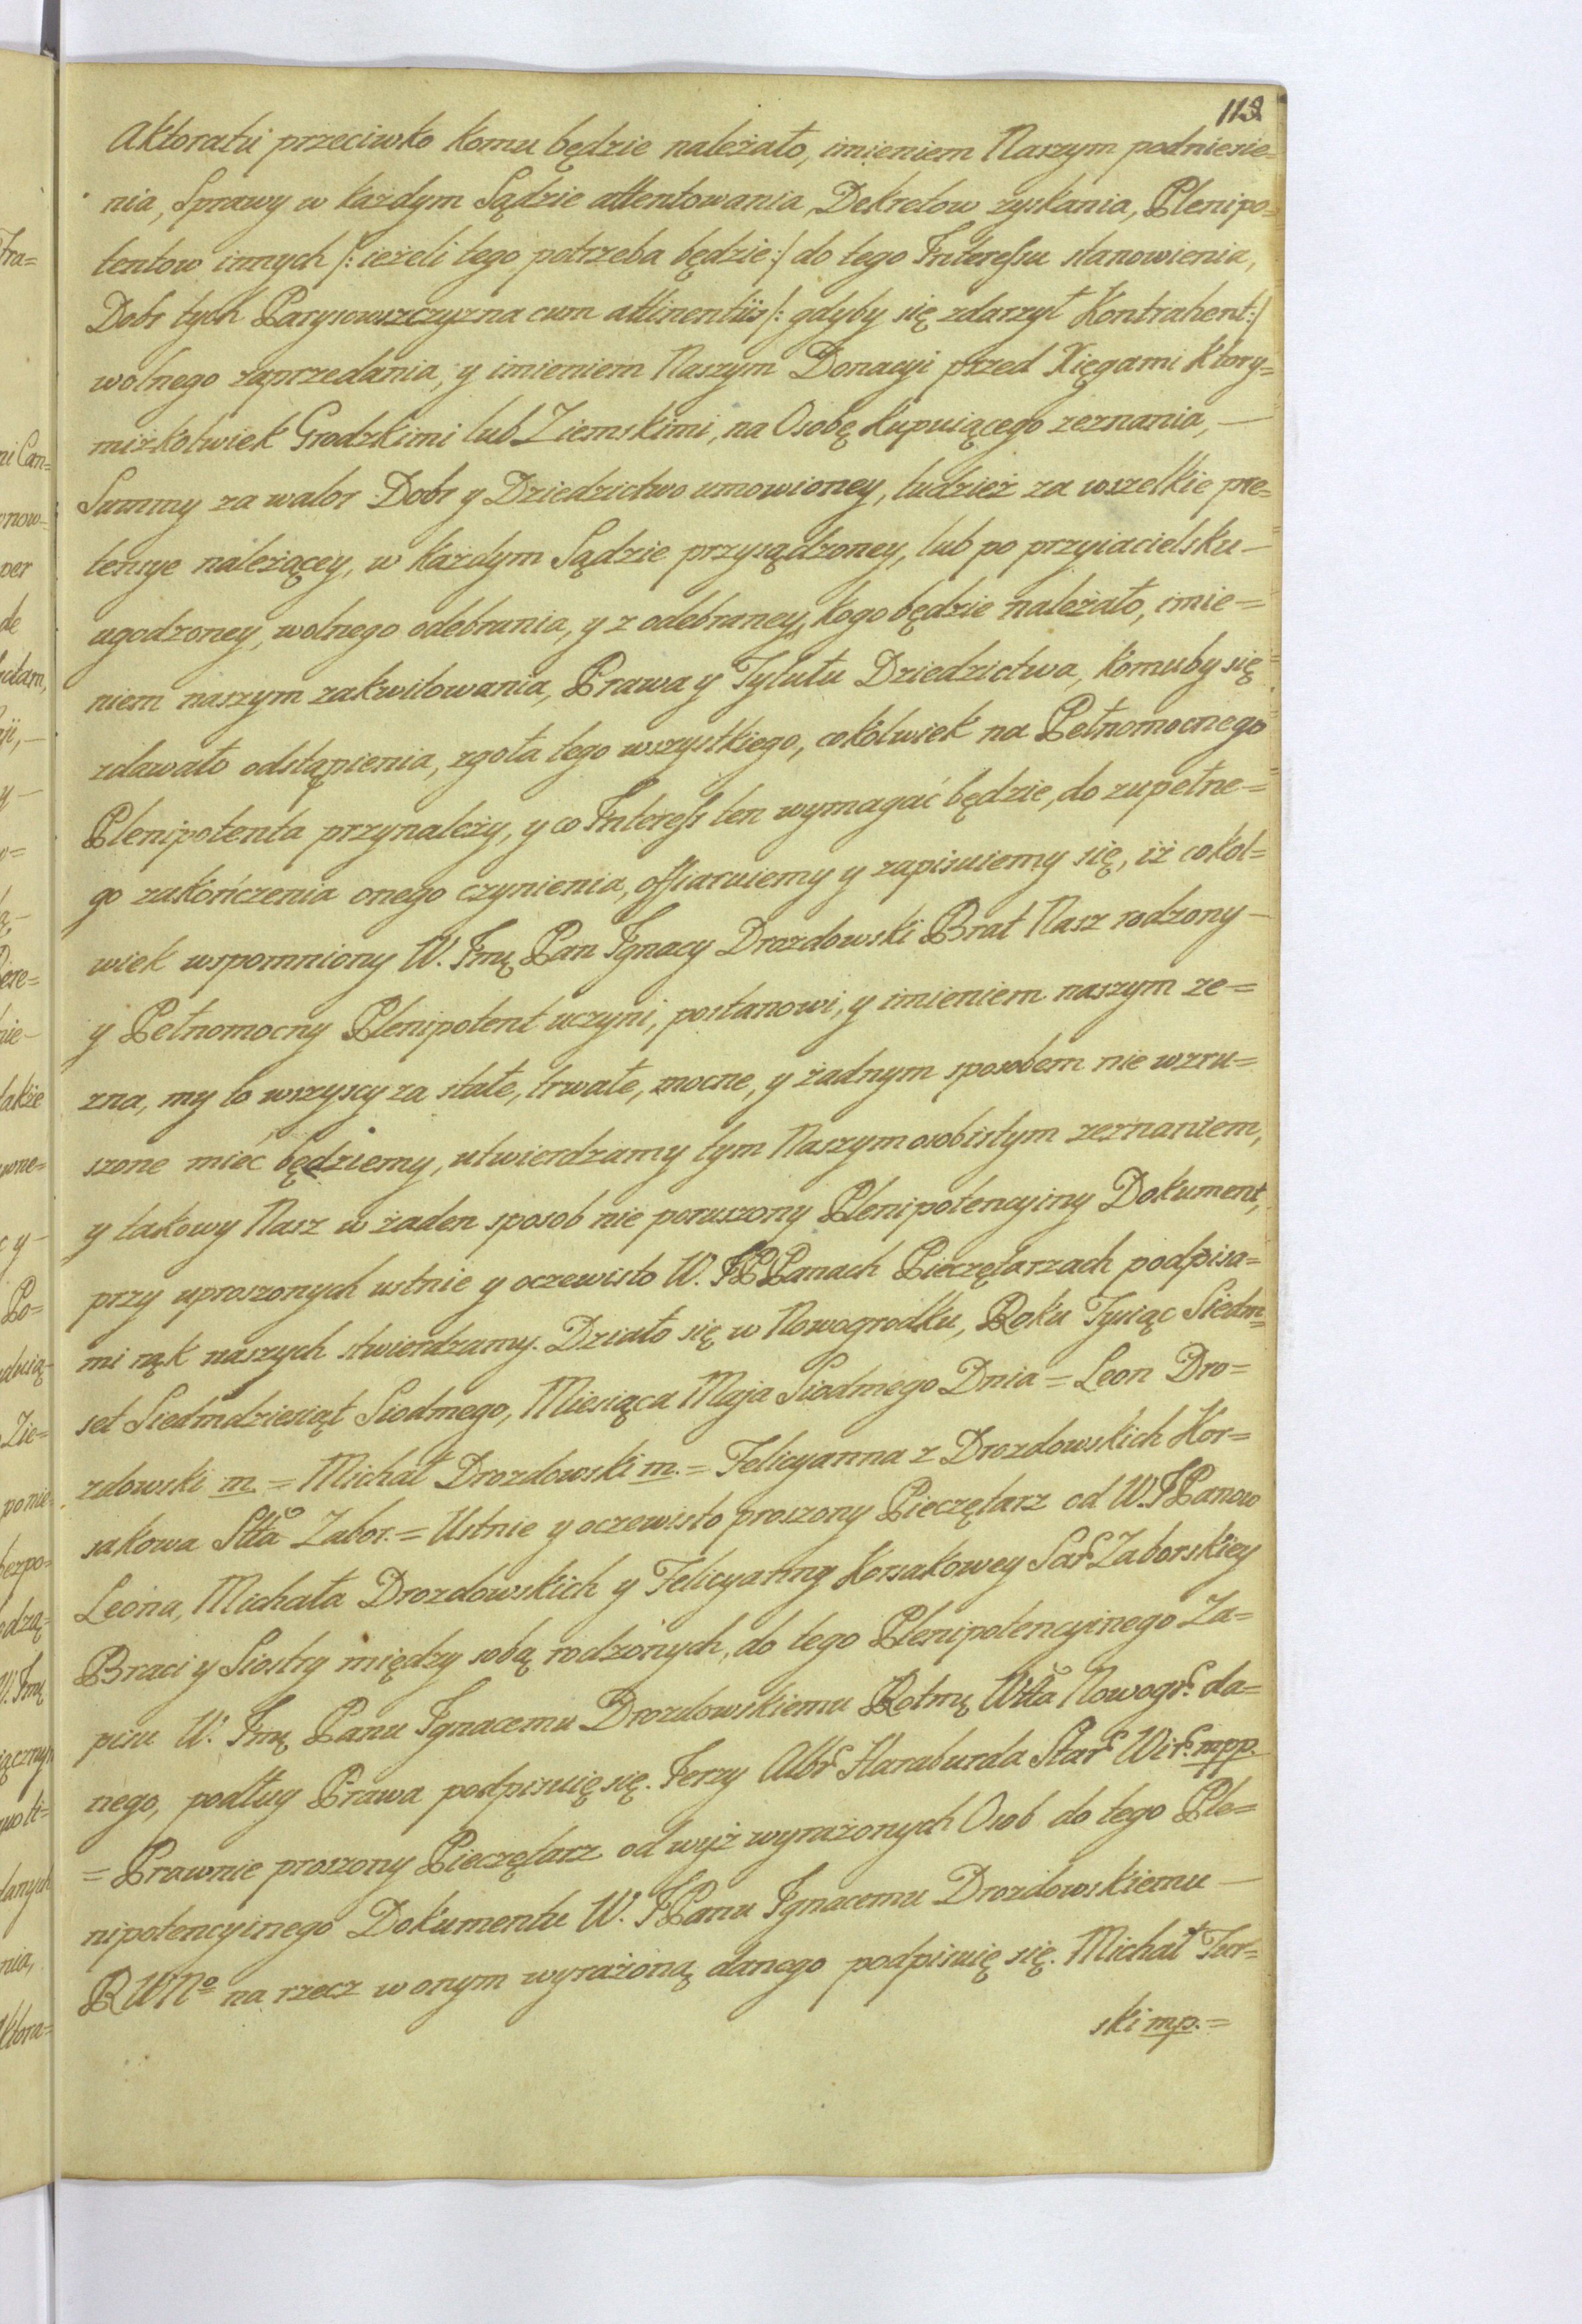 113.
Aktoratu przeciwko komu będzie należało, imieniem Naszym podniesie=
nia, Sprawy w każdym Sądzie attentowania, Dekretow zyskania, Plenipo=
tentow innych /: ieżeli tego potrzeba będzie :/ do tego Interessu stanowienia,
Dobr tych Parysowszczyzna cum attinentiis /: gdyby się zdarzył Kontrahent :/
wolnego zaprzedania, y imieniem Naszym Donacyi przed Xięgami ktory=
miżkolwiek Grodzkimi lub Ziemskimi, na Osobę kupuiącego zeznania, —
Summy za walor Dobr y Dziedzictwo umowioney, tudzież za wszelkie pre=
tensye należącey, w każdym Sądzie przysądzoney, lub po przyiacielsku —
ugodzoney, wolnego odebrania, y z odebraney, kogo będzie należało, imie=
niem naszym zakwitowania, Prawa y Tytułu Dziedzictwa, komuby się
zdawało odstąpienia, zgoła tego wszystkiego, cokolwiek na Pełnomocnego
Plenipotenta przynależy, y co Interess ten wymagać będzie, do zupełne=
go zakończenia onego czynienia, offiaruiemy y zapisuiemy się, iż cokol=
wiek wspomniony W. Jmę Pan Ignacy Drozdowski Brat Nasz rodzony —
y Pełnomocny Plenipotent uczyni, postanowi, y imieniem naszym ze=
zna, my to wszyscy za stałe, trwałe, mocne, y żadnym sposobem nie wzru=
szone mieć będziemy, utwierdzamy tym Naszym osobistym zeznaniem,
y takowy Nasz w żaden sposob nie poruszony Plenipotencyiny Dokument,
przy uproszonych ustnie y oczewisto W. JPPanach Pieczętarzach podpisa=
mi rąk naszych stwierdzamy. Działo się w Nowogrodku, Roku Tysiąc Siedm=
set Siedmdziesiąt Siodmego, Miesiąca Maja Siodmego Dnia = Leon Dro=
zdowski m. = Michał Drozdowski m. = Felicyanna z Drozdowskich Kor=
sakowa Stta Zabor. = Ustnie y oczewisto proszony Pieczętarz od W. JPPanow
Leona, Michała Drozdowskich y Felicyanny Korsakowey Sar Zaborskiey
Braci y Siostry między sobą rodzonych, do tego Plenipotencyinego Za=
pisu W. Jmę Panu Ignacemu Drozdowskiemu Rotmę Wtta Nowogr. da=
nego, podług Prawa podpisuię się. Jerzy Albr Haraburda Star Wit. mpp.
= Prawnie proszony Pieczętarz od wyż wyrażonych Osob do tego Ple=
nipotencyinego Dokumentu W. JPanu Ignacemu Drozdowskiemu —
RWNo na rzecz w onym wyrażoną danego podpisuię się. Michał Tur=
ski mp. =